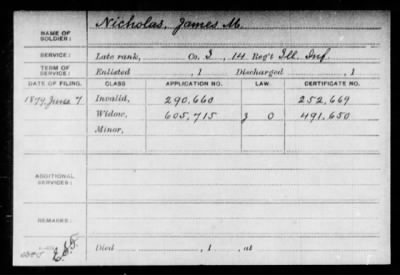 NAME OF SOLDIER: Nicholas, James M.
SERVICE: Late rank, Co. I, 14 Reg't Ill. Inf.
TERM OF SERVICE: Enlisted , 1 Discharged , 1
DATE OF FILING. CLASS APPLICATION NO. LAW. CERTIFICATE NO.
1879, June 7 Invalid, 290,660 252,669
Widow, 605,715 J O 491,650
Minor,
ADDITIONAL SERVICES:
REMARKS:
Died , 1 , at